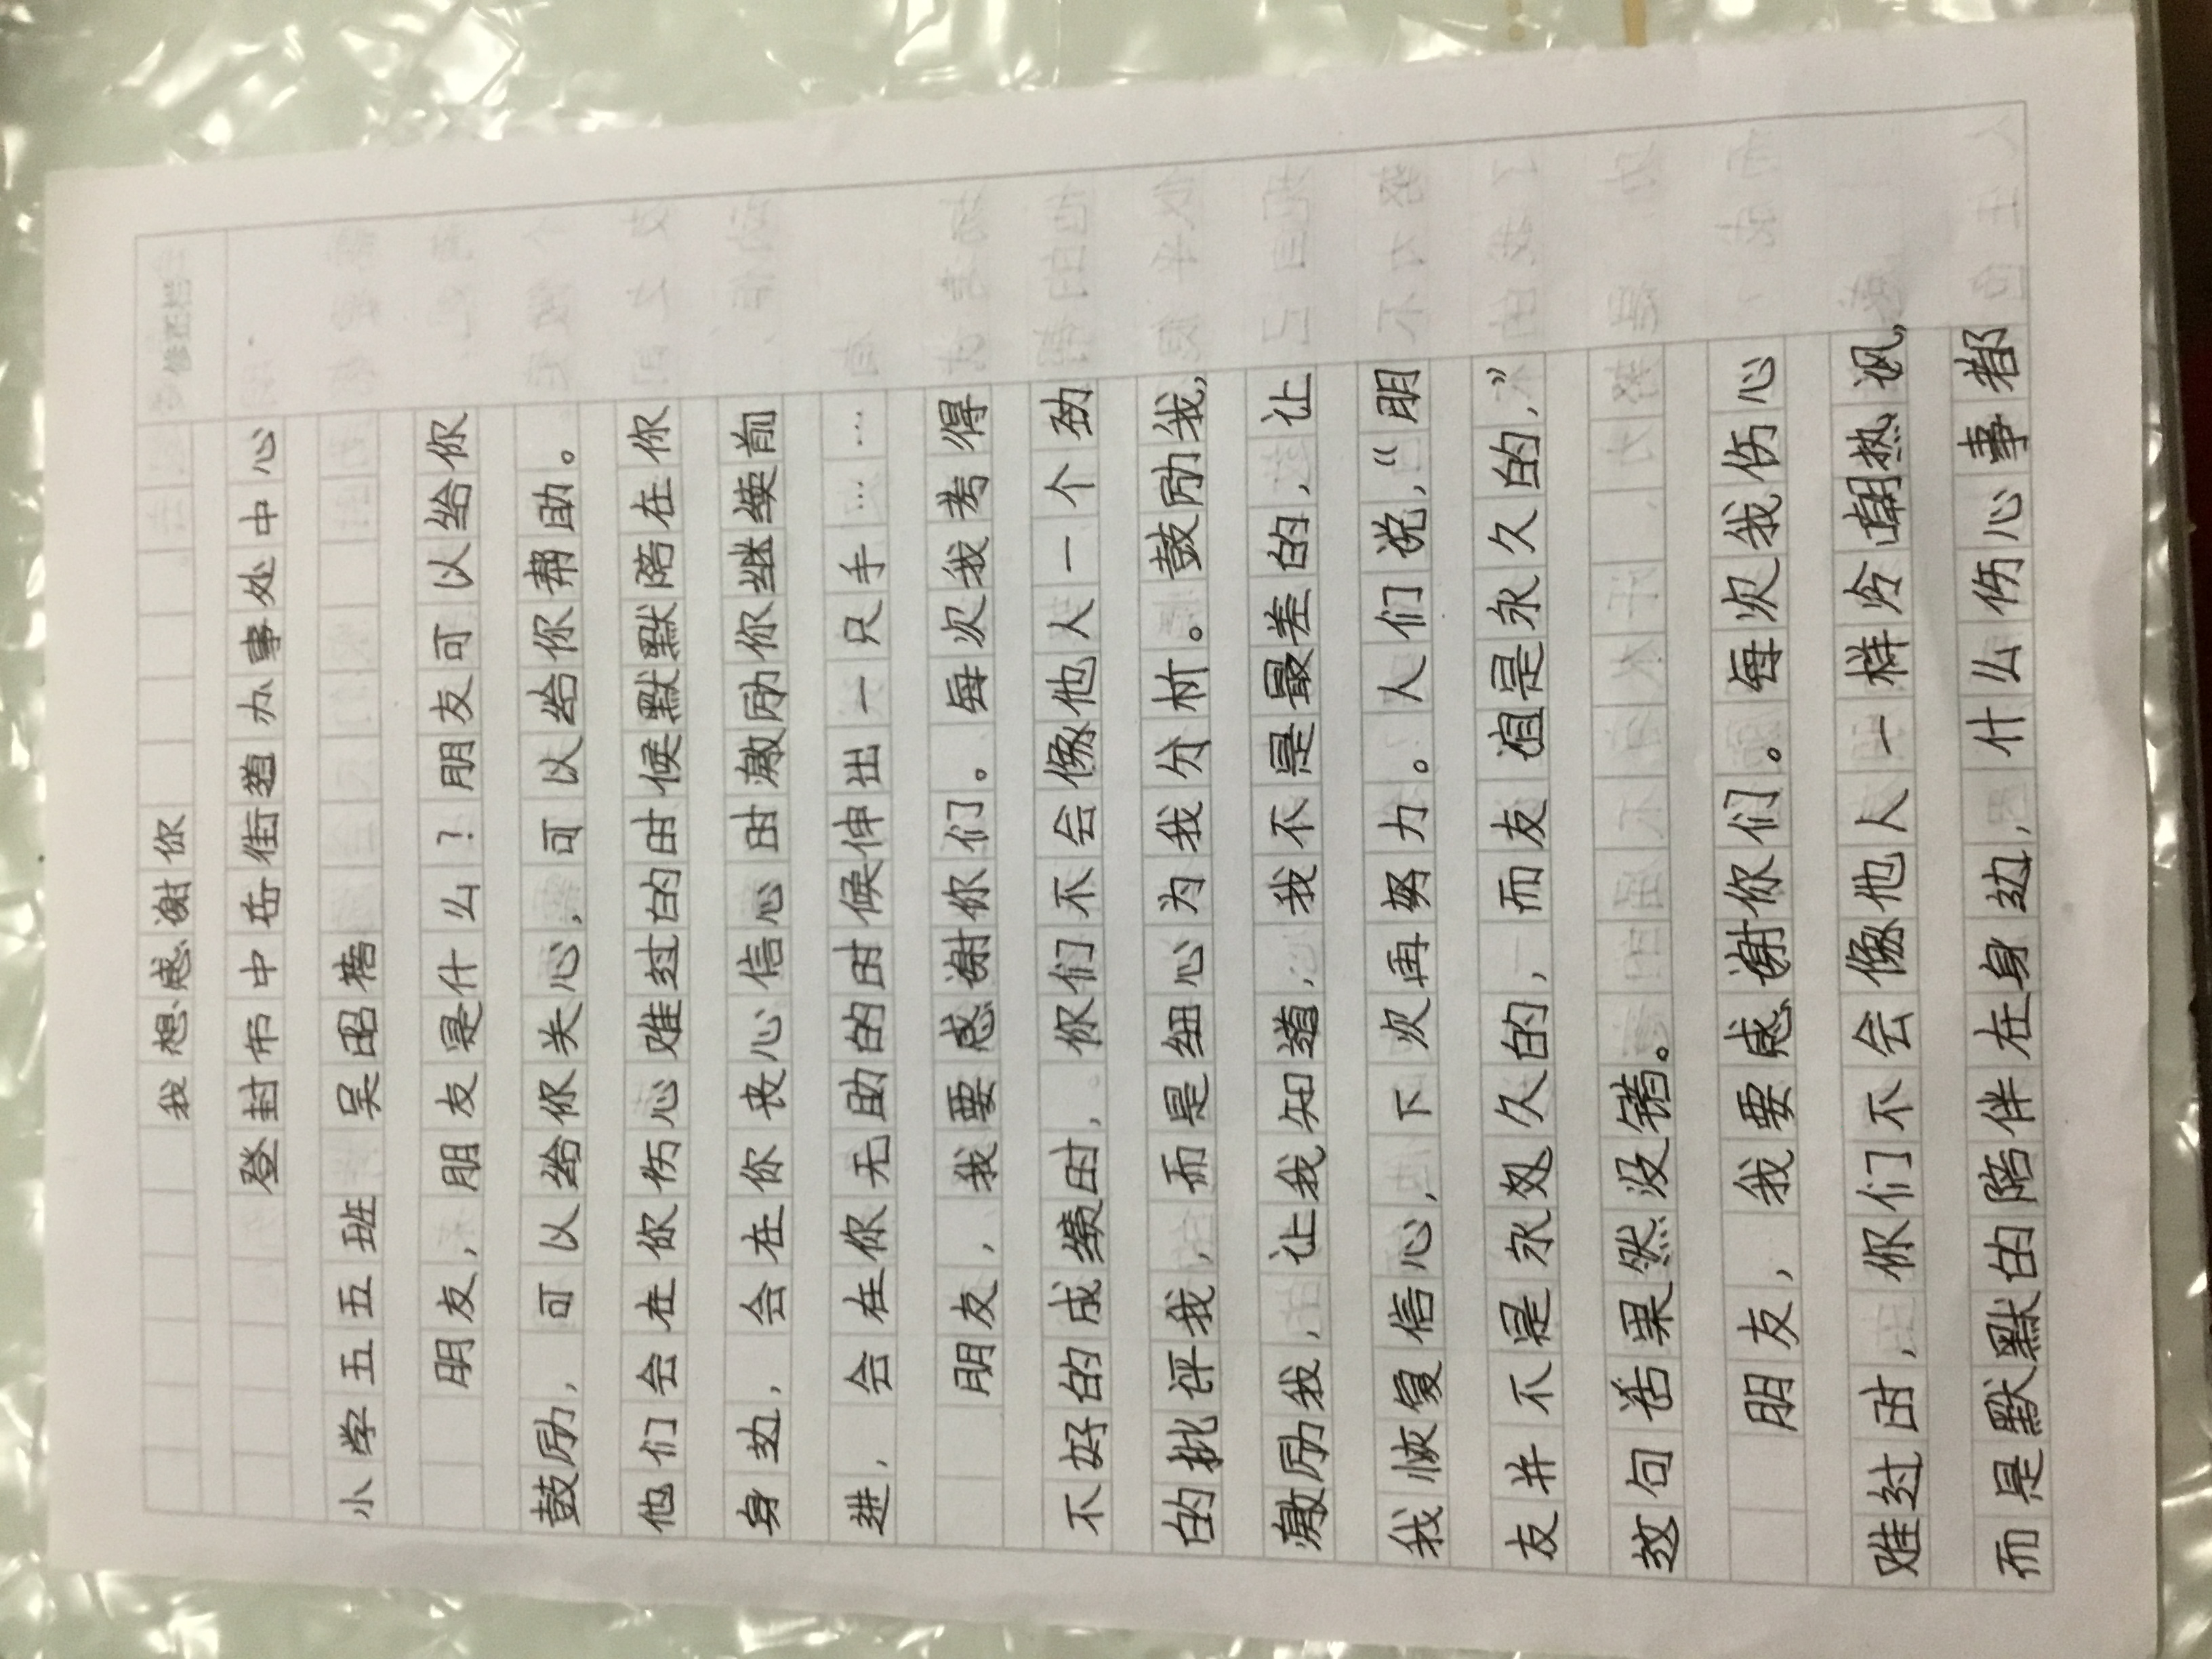 我想感谢你
登封市中岳街道办事处中心
小学五五班 吴昭
朋友，朋友是什么？朋友可以给你
鼓励，可以给你关心，可以给你帮助。
他们会在你伤心难过的时候默默陪在你
身边，会在你丧心信心时激励你继续前
进，会在你无助的时候伸出一只手……
朋友，我要感谢你们。每次我考得
不好的成绩时，你们不会像他人一个劲
的批评我，而是细心为我分析。鼓励我，
激励我，让我知道，我不是最差的，让
我恢复信心，下次再努力。人们说，“朋
友并不是永久的，而友谊是永久的，”
这句话果然没错。
朋友，我要感谢你们。每次我伤心
难过时，你们不会像他人一样冷嘲热讽，
而是默默的陪伴在身边，什么伤心事都
修正栏